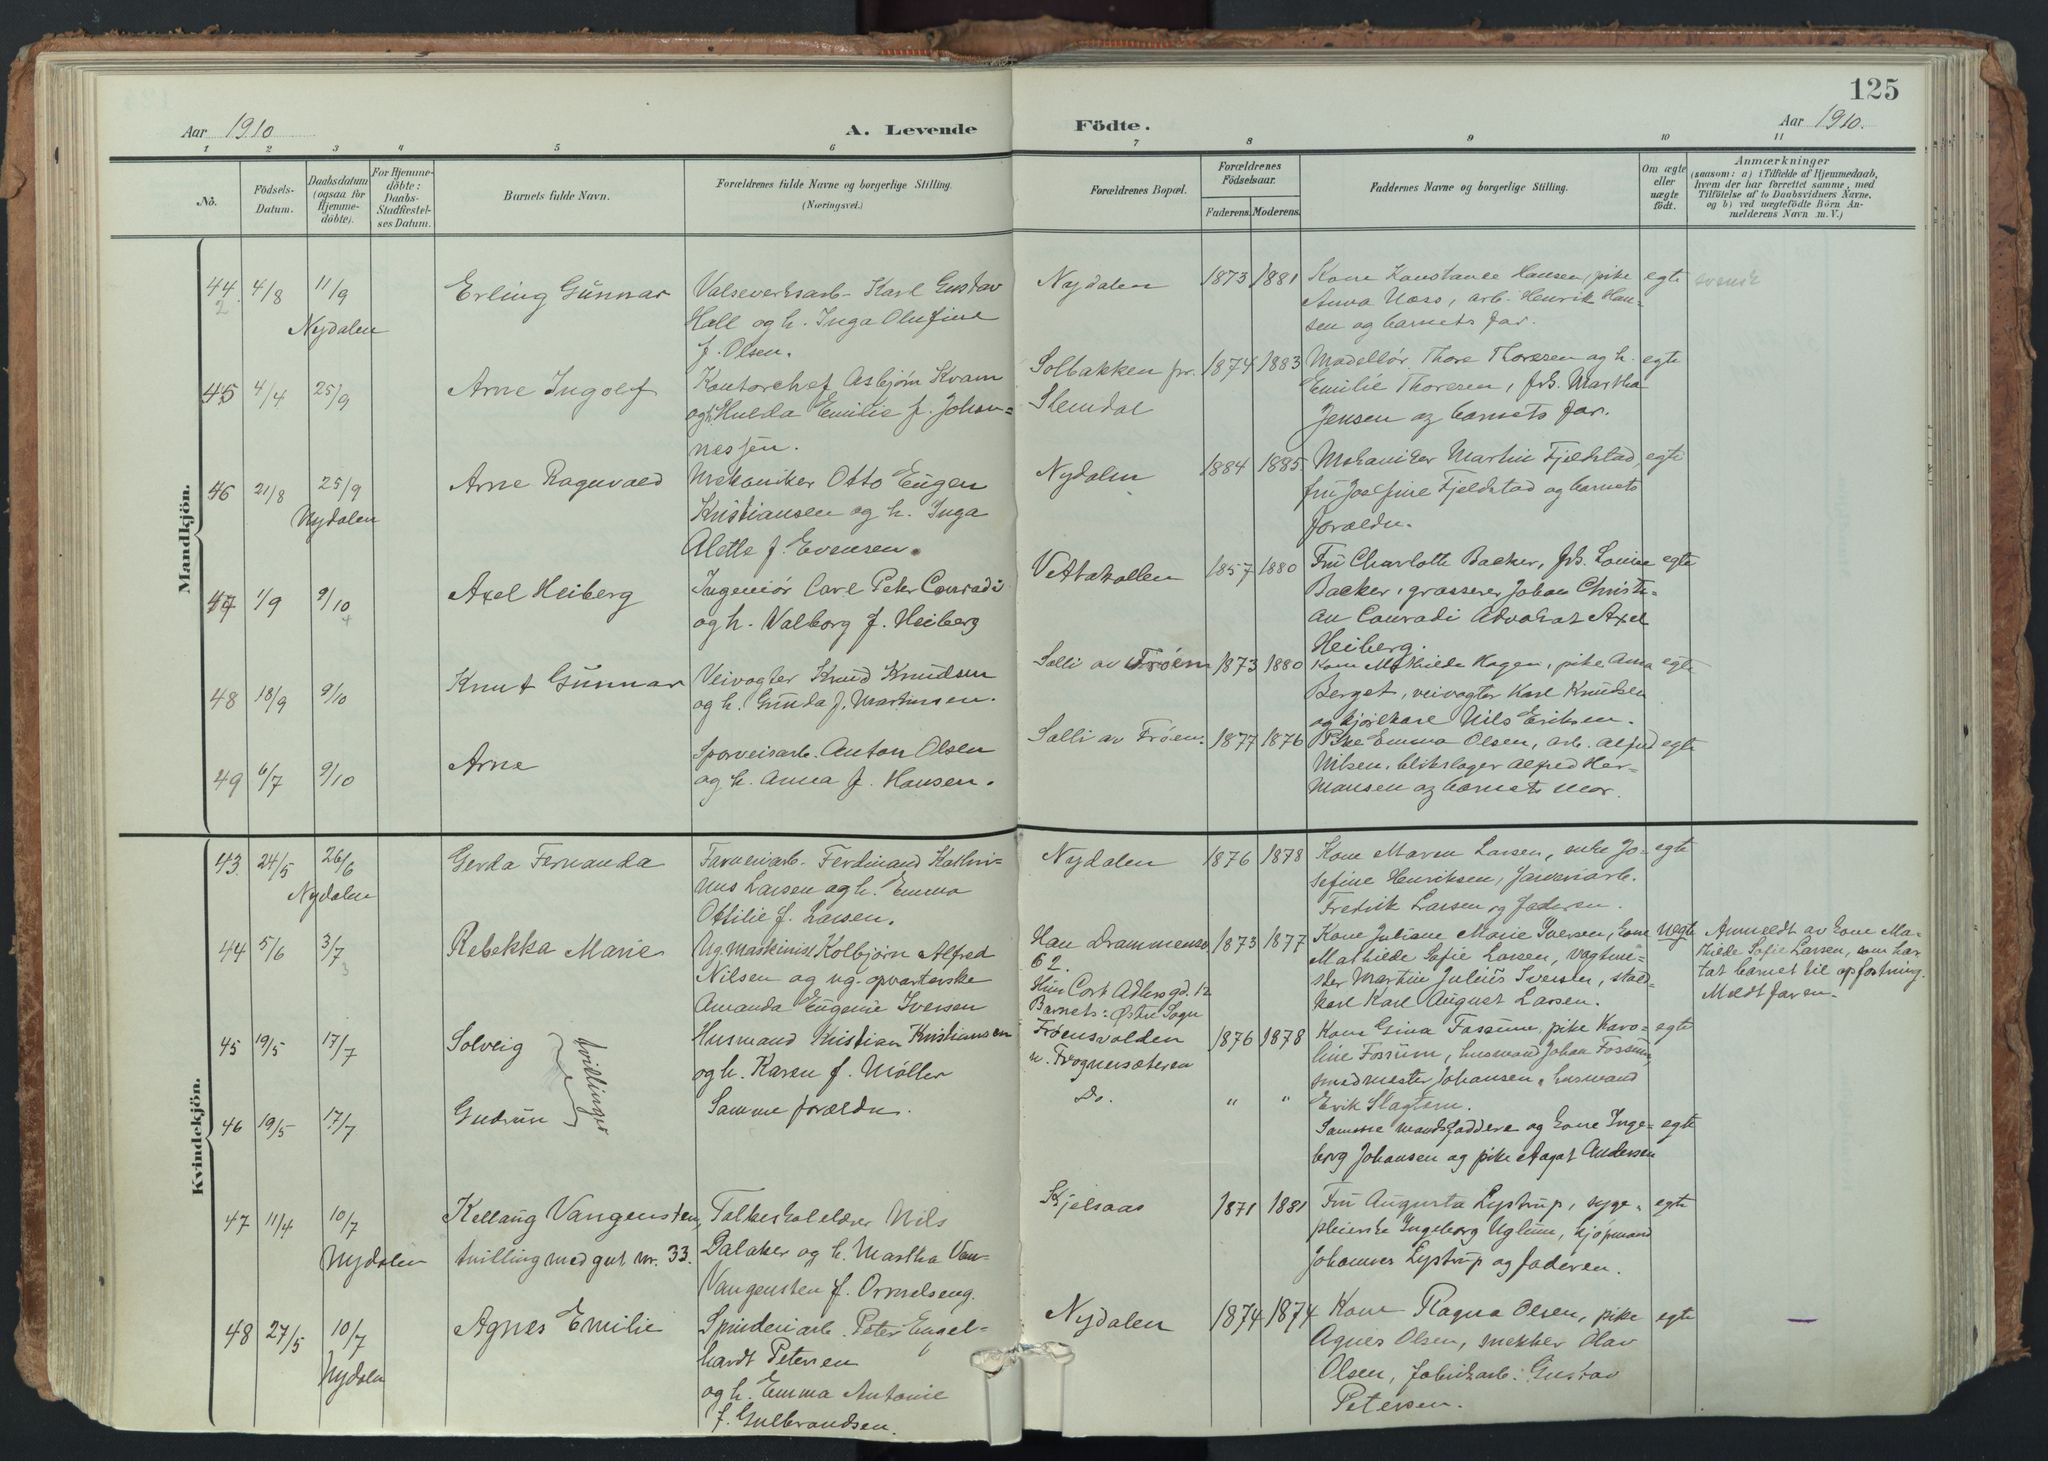 125
Aar 1910
A. Levende
Födte.
Aar 1910.
1 2 3 4 5 6 7 8 9 10 11
No.
Födsels-
Datum.
Daabsdatum
(ogsaa for
Hjemme-
döbte).
For Hjemme-
döbte:
Daabs-
Stadfæstel-
ses Datum.
Barnets fulde Navn.
Forældrenes fulde Navne og borgerlige Stilling.
(Næringsvei.)
Forældrenes Bopæl.
Forældrenes
Födselsaar.
Faderens. Moderens.
Faddernes Navne og borgerlige Stilling.
Om ægte
eller
uægte
födt.
Anmærkninger
(saasom: a) i Tilfælde af Hjemmedaab,
hvem der har forrettet samme, med
Tilföielse af to Daabsvidners Navne,
og b) ved uægtefödte Börn An-
melderens Navn m. V.)
Mandkjön.
44 4/8 11/9
2
Nydalen
Erling Gunnar
Valseverksarb. Karl Gustav
Hall og h. Inga Olufine
f. Olsen.
Nydalen
1873 1881
Kone Konstance Hansen, pike
Anna Næss, arb. Henrik Han-
sen og barnets far.
egte
svensk
45 4/4 25/9
Arne Ingolf
Kontorchef Asbjørn Kvam
og h. Hulda Emilie f. Johan-
nessen.
Solbakken pr.
Slemdal
1874 1883
Modellør Thore Thoresen og h.
Emilie Thoresen, frk. Martha
Jensen og barnets far.
egte
46 21/8 25/9
Nydalen
Arne Ragnvald
Mekaniker Otto Eugen
Kristiansen og h. Inga
Alette f. Evensen.
Nydalen
1884 1885
Mekaniker Martin Fjeldstad,
fru Josefine Fjeldstad og barnets
forældre.
egte
47 1/9 9/10
Axel Heiberg
Ingeniør Carl Peter Conradi
og h. Valborg f. Heiberg
Vettakollen
1857 1880
Fru Charlotte Backer, frk. Louise
Backer, grosserer Johan Christi-
an Conradi Advokat Axel
Heiberg.
egte
48 18/9 9/10
Knut Gunnar
Veivogter Knud Knudsen
og h. Gunda f. Martinsen.
Solli av Frøen
1873 1880
Kone Mathilde Hagen, pike Anna
Berget, veivogter Karl Knudsen
og kjørekarl Nils Eriksen.
egte
49 6/7 9/10
Arne
Sporveisarb. Anton Olsen
og h. Anna f. Hansen.
Solli av Frøen.
1877 1876
Pike Emma Olsen, arb. Alfred
Nilsen, blikslager Alfred Her-
mansen og barnets mor.
egte
Kvindekjön.
43. 24/5 26/6
Nydalen
Gerda Fernanda
Farveriarb. Ferdinand Karlin-
ius Larsen og h. Emma
Ottilie f. Larsen.
Nydalen
1876 1878
Kone Maren Larsen, enke Jo-
sefine Henriksen, farveriarb.
Fredrik Larsen og faderen.
egte
44 5/6 3/7
3
Rebekka Marie
Ug. maskinist Kolbjørn Alfred
Nilsen og ug. opvarterske
Amanda Eugenie Iversen
Han Drammensv.
62.
Hun Cort Adlersgd. 12
Barnets: Østre Sogn
1873 1877
Kone Juliane Marie Iversen, kone
Mathilde Sofie Larsen, vagtme-
ster Martin Julius Iversen, stald-
karl Karl August Larsen.
uegte
Anmeldt av kone Ma-
thilde Sofie Larsen, som har
tat barnet til opfostring.
Meldt faren.
45 19/5 17/7
Solveig
tvillinger
Husmand Kristian Kristiansen
og h. Karen f. Møller
Frøensvolden
v. Frognersæteren
1876 1878
Kone Gina Fossum, pike Karo-
line Fossum, husmand Johan Fossum,
smedmester Johansen, husmand
Erik Slagtern.
egte
46 19/5 17/7
Gudrun
Samme forældre.
Do.
" "
Samme mandsfaddere og kone Inge-
borg Johansen og pike Aagot Andersen
egte
47 11/4 10/7
Nydalen
Kellaug Vangensten,
tvilling med gut nr. 33.
Folkeskolelærer Nils
Dalaker og h. Martha Van-
Vangensten f. Ormelseng.
Kjelsaas
1871 1881
Fru Augusta Lystrup, syge-
pleierske Ingeborg Uglum, kjøpmand
Johannes Lystrup og faderen.
egte
48 27/5 10/7
Nydalen
Agnes Emilie
Spinderiarb. Peter Engel-
hardt Petersen
og h. Emma Antonie
f. Gulbrandsen.
Nydalen
1874 1874
Kone Ragna Olsen, pike
Agnes Olsen, snekker Olav
Olsen, fabrikarb. Gustav
Petersen.
egte
—